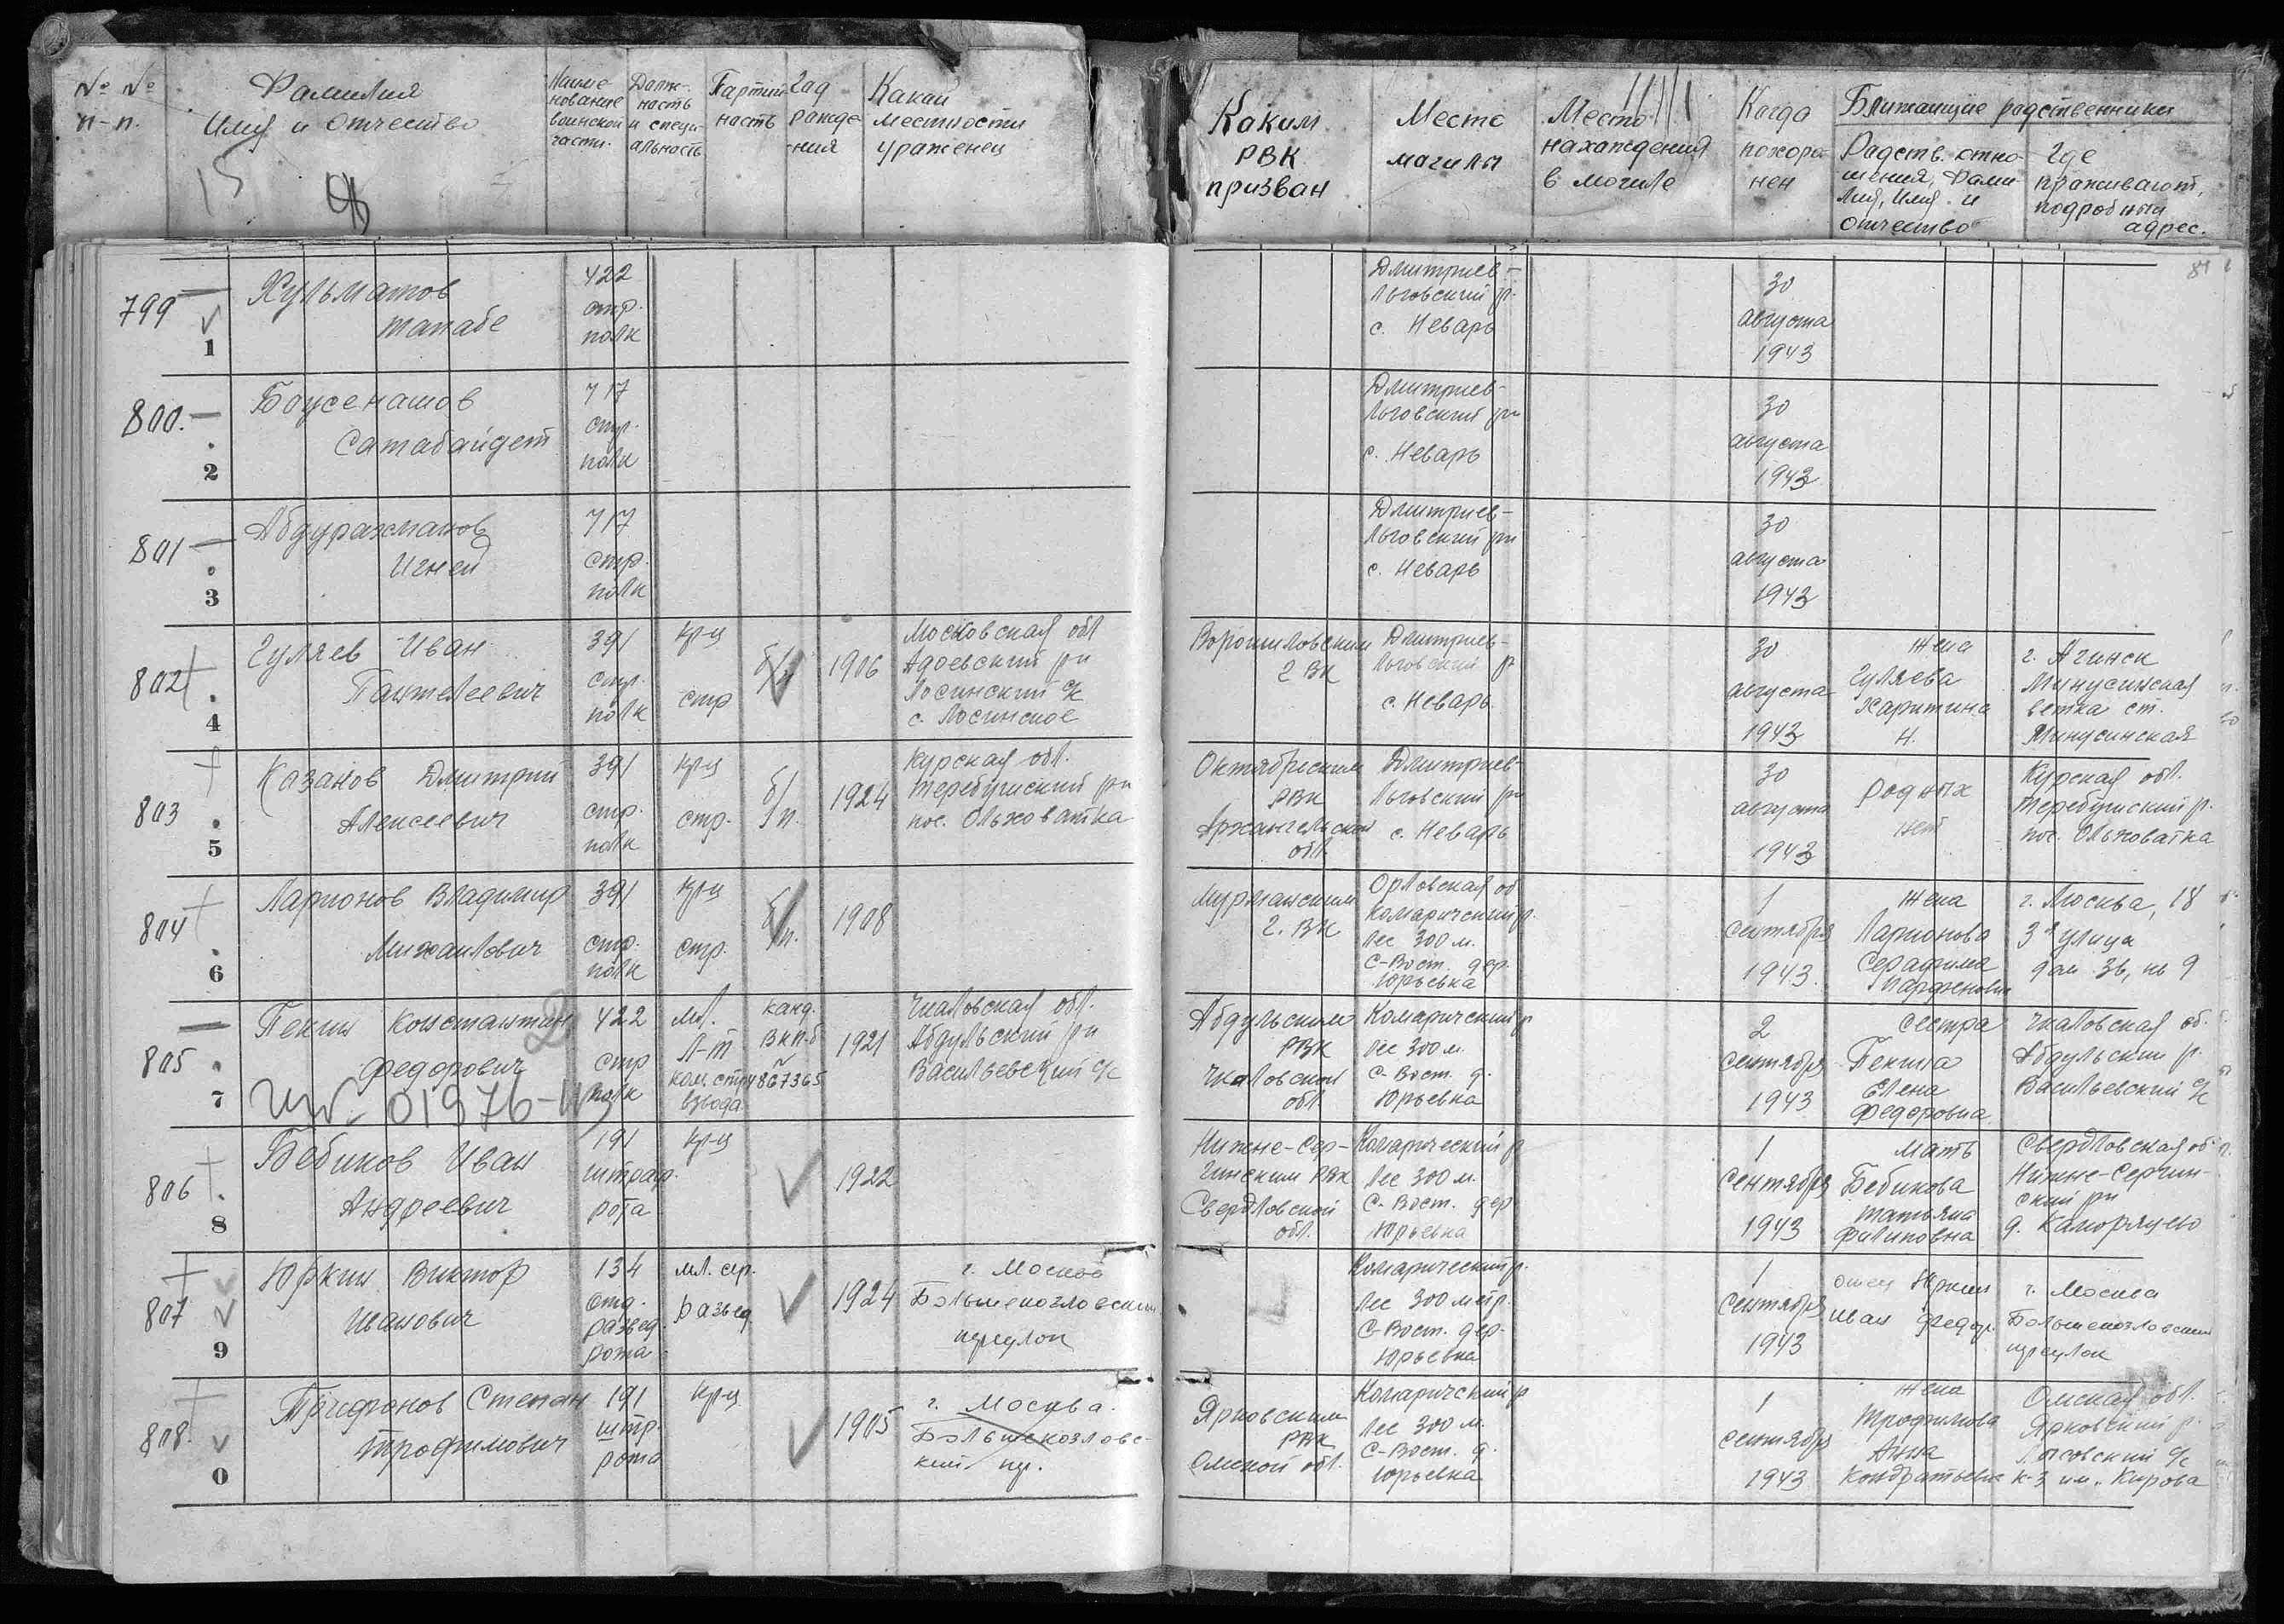 № № п-п.
Фамилия Имя и отчество
Наиме-нование воинской части.
Долж-ность и специ-альность
Партий-ность
Год рожде-ния
Какой местности уроженец
Каким РВК призван
Место могилы
Место нахождения в могиле
Когда похоро-нен
Ближайшие родственники
Родств. отно-шения, Фами-лия, Имя и отчество
Где проживают, подробный адрес.
15
81
799
1
Кульматов
тапабе
422
стр.
полк
Дмитриев-
Льговский р.
с. Неварь
30
августа
1943
800.
2
Боусенашов
Сатабайдет
717
стр.
полк
Дмитриев-
Льговский рн
с. Неварь
30
августа
1943
801
3
Абдурахманов
Игней
717
стр.
полк
Дмитриев-
Льговский рн
с. Неварь
30
августа
1943
802
4
Гуляев Иван
Пантелеевич
391
стр.
полк
кр-ц
стр
б/п
1906
Московская обл
Адоевский рн
Лосинский с/с
с. Лосинское
Ворошиловским
г ВК
Дмитриев-
Льговский р
с. Неварь
30
августа
1943
жена
Гуляева
Харитина
Н.
г. Ачинск
Минусинская
ветка ст.
Минусинская
803
5
Казанов Дмитрий
Алексеевич
391
стр.
полк
кр-ц
стр.
б/п.
1924
Курская обл.
Теребушский рн
пос. Ольховатка
Октябрьским
РВК
Архангельской
обл.
Дмитриев-
Льговский рн
с. Неварь
30
августа
1943
Родных
нет
Курская обл.
Теребушский р.
пос. Ольховатка
804
6
Ларионов Владимир
Михайлович
391
стр.
полк
кр-ц
стр.
б/п.
1908
Мурманским
г. ВК
Орловская об
Комаричский р.
Лес 300 м.
С-Вост. дер.
Юрьевка
1
сентября
1943
Жена
Ларионова
Серафима
Парфеновн
г. Москва, 18
3я улица
дом 3в, кв 9
805
7
Пекин Константин
Федорович
422
стр
полк
мл.
л-т
ком. стр
взвода
канд.
ВКП-б
4867365
1921
Чкаловская обл.
Абдульский рн
Васильевский с/с
Абдульским
РВК
Чкаловской
обл.
Комаричский р
Лес 300 м.
С-Вост. д.
Юрьевка
2
сентября
1943
сестра
Пекина
Елена
Федоровна
Чкаловская об.
Абдульский р.
Васильевский с/с
01976-
806
8
Бебиков Иван
Андреевич
191
штраф.
рота
кр-ц
1922
Нижне-Сер-
гинским РВК
Свердловской
обл.
Комаричский р
Лес 300 м.
С-Вост. дер
Юрьевка
1
сентября
1943
мать
Бебикова
Татьяна
Филиповна
Свердловская об.
Нижне-Сергин-
ский рн
807
9
Юркин Виктор
Иванович
134
отд.
развед.
рота
мл. сер.
развед
1924
г. Москва
Большекозловский
переулок
Комаричский р.
Лес 300 метр.
С-Вост. дер.
Юрьевка
1
сентября
1943
отец Юркин
Иван Федор.
г. Москва
Большекозловский
переулок
808.
0
Трифонов Степан
Трофимович
191
штр.
рота
кр-ц
1905
г. Москва.
Большекозловс-
кий пер.
Ярковским
РВК
Омской обл.
Комаричский р
Лес 300 м.
С-Вост. д.
Юрьевка
1
сентября
1943
Жена
Трофимова
Анна
Кондратьевна
Омская обл.
Ярковский р.
к-з им. Кирова